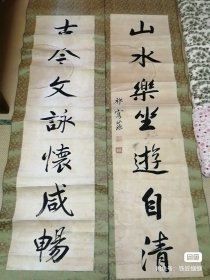 山水樂坐遊自清
古今文詠懷咸暢
祁寯藻